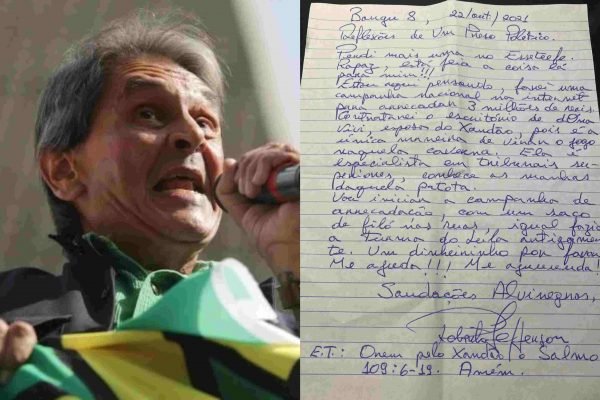 Bangu 8, 22/out/2021
Reflexões de Um Preso Político.
Perdi mais uma no Essetefe.
Rapaz, está feia a coisa lá
para mim!!!
Estou aqui pensando, farei uma
campanha nacional na internet
para arrecadar 3 milhões de reis
Contratarei o escritório de dona
Vivi, esposa do Xandão, pois é a
única maneira de virar o jogo
naquela caverna. Ela é
especialista em tribunais su-
periores, conhece as manhas
daquela patota.
Vou iniciar a campanha de
arrecadação, com um saco
de filó nas ruas, igual fazia
a turma do antigamen-
te. Um dinheirinho por favor
Me ajuda!!! Me ajudeeenda!
Saudações Alvinegras,
Roberto Jefferson
E.T.: Orem pelo Xandão o Salmo
109:6-19. Amém.